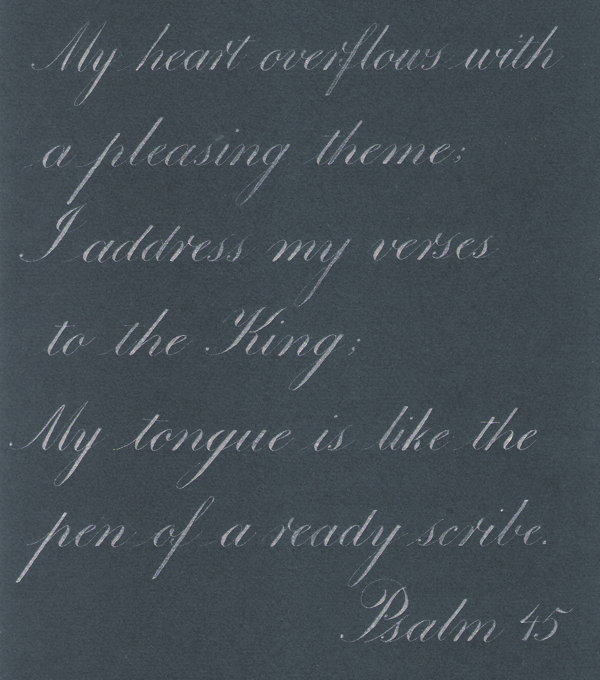 My heart overflows with
a pleasing theme;
I address my verses
to the King;
My tongue is like the
pen of a ready scribe.
Psalm 45